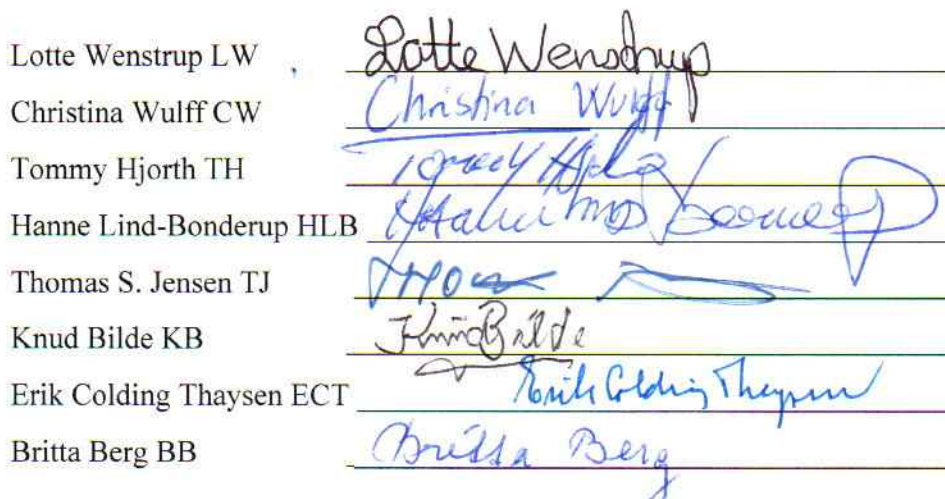 Lotte Wenstrup LW Lotte Wenstrup
Christina Wulff CW Christina Wulff
Tommy Hjorth TH Tommy
Hanne Lind-Bonderup HLB
Thomas S. Jensen TJ
Knud Bilde KB Knud Bilde
Erik Colding Thaysen ECT Erik Colding Thaysen
Britta Berg BB Britta Berg